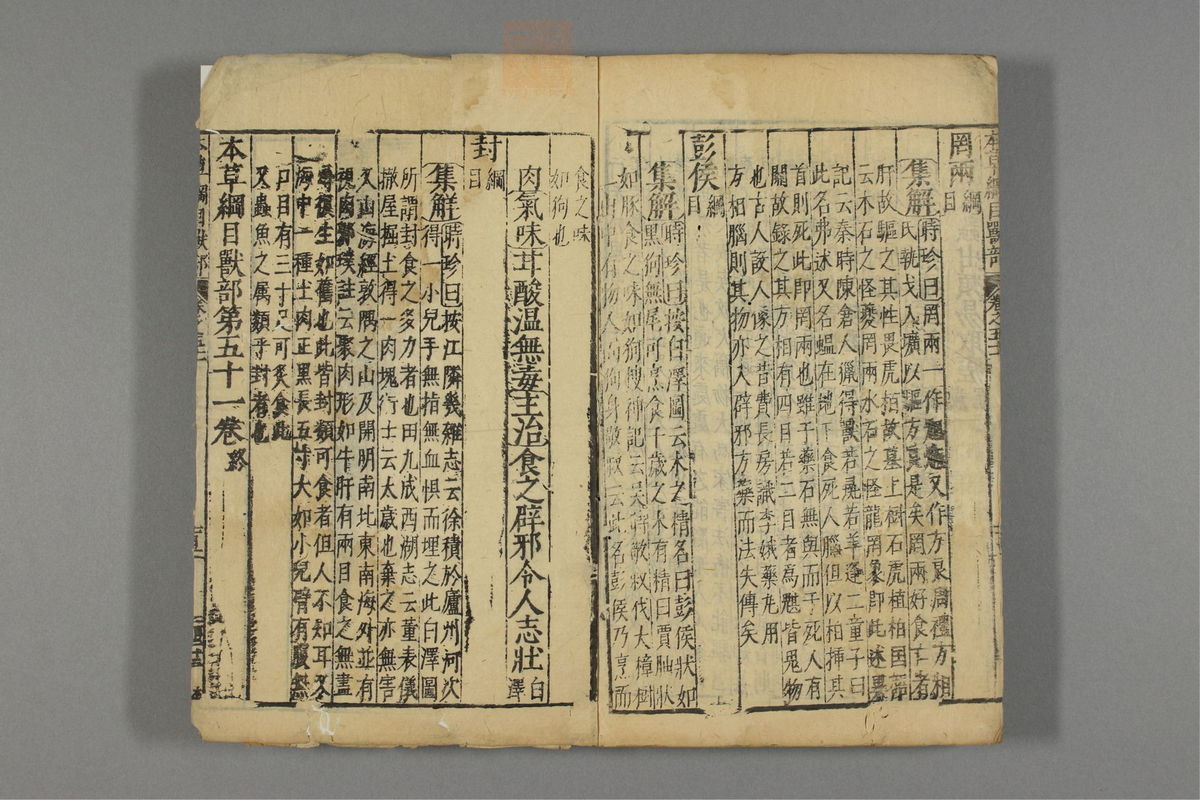 本草綱目獸部 卷之五十一
罔兩綱目
集解時珍曰罔兩一作魍魎又作方良周禮方相
氏執戈入壙以驅方良是矣罔兩好食亡者
肝故驅之其性畏虎柏故墓上樹石虎植柏國語
云木石之怪夔罔兩水石之怪龍罔象即此述異
記云秦時陳倉人獵得獸若彘若羊逢二童子曰
此名弗述又名蝹在地下食死人腦但以柏插其
首則死此即罔兩也雖于藥石無與而于死人有
關故錄之其方相有四目若二目者為魌皆鬼物
也古人設人像之昔費長房識李娥藥丸用
方相腦則其物亦入辟邪方藥而法失傳矣
彭侯綱目
集解時珍曰按白澤圖云木之精名曰彭侯狀如
黑狗無尾可烹食千歲之木有精曰賈肭狀
如豚食之味如狗搜神記云吳時敬叔伐大樟樹
中有物人面狗身敬叔云此名彭侯乃烹而
食之味
如狗也
肉氣味甘酸温無毒主治食之辟邪令人志壯白澤
封綱目
集解時珍曰按江隣幾雜志云徐積於廬州河次
得一小兒手無指無血懼而埋之此白澤圖
所謂封食之多力者也田九成西湖志云董表儀
撤屋掘土得一肉塊術士云太歲也棄之亦無害
又山海經敦隅之山及開明南北東南海外並有
視肉郭璞註云聚肉形如牛肝有兩目食之無盡
尋復生如舊也此皆封類可食者但人不知耳又
海中一種土肉正黑長五寸大如小兒臂有腹無
口目有三十足可炙食此
又蟲魚之属類乎封者也
本草綱目獸部第五十一卷終
本草綱目獸部 卷之五十一